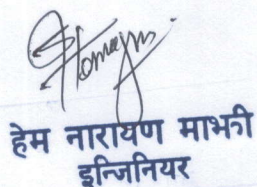 हेम नारायण माझी
इन्जिनियर